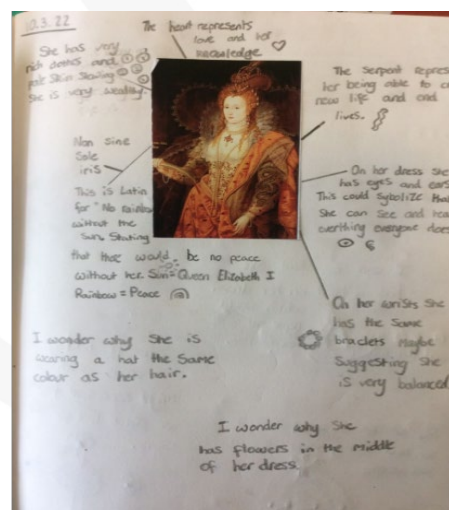 10.3.22
The heart represents
love and her
knowledge
She has very
rich clothes and
pale Skin Showing
She is very wealthy.
The Serpent repres
her being able to c
new life and end
lives.
Non Sine
Sole
iris
This is Latin
for "No rainbo
without the
Sun. Stating
that there would be no peace
without her Sun= Queen Elizabeth I
Rainbow = Peace
On her dress she
has eyes and ears
This could Sybolize tha
She can See and hea
everthing everyone does
On her wrists She
has the Same
braclets Maybe
Suggesting She
is very balanced
I wonder why She is
wearing a hat the Same
colour as her hair.
I wonder why She
has flowers in the Middle
of her dress.